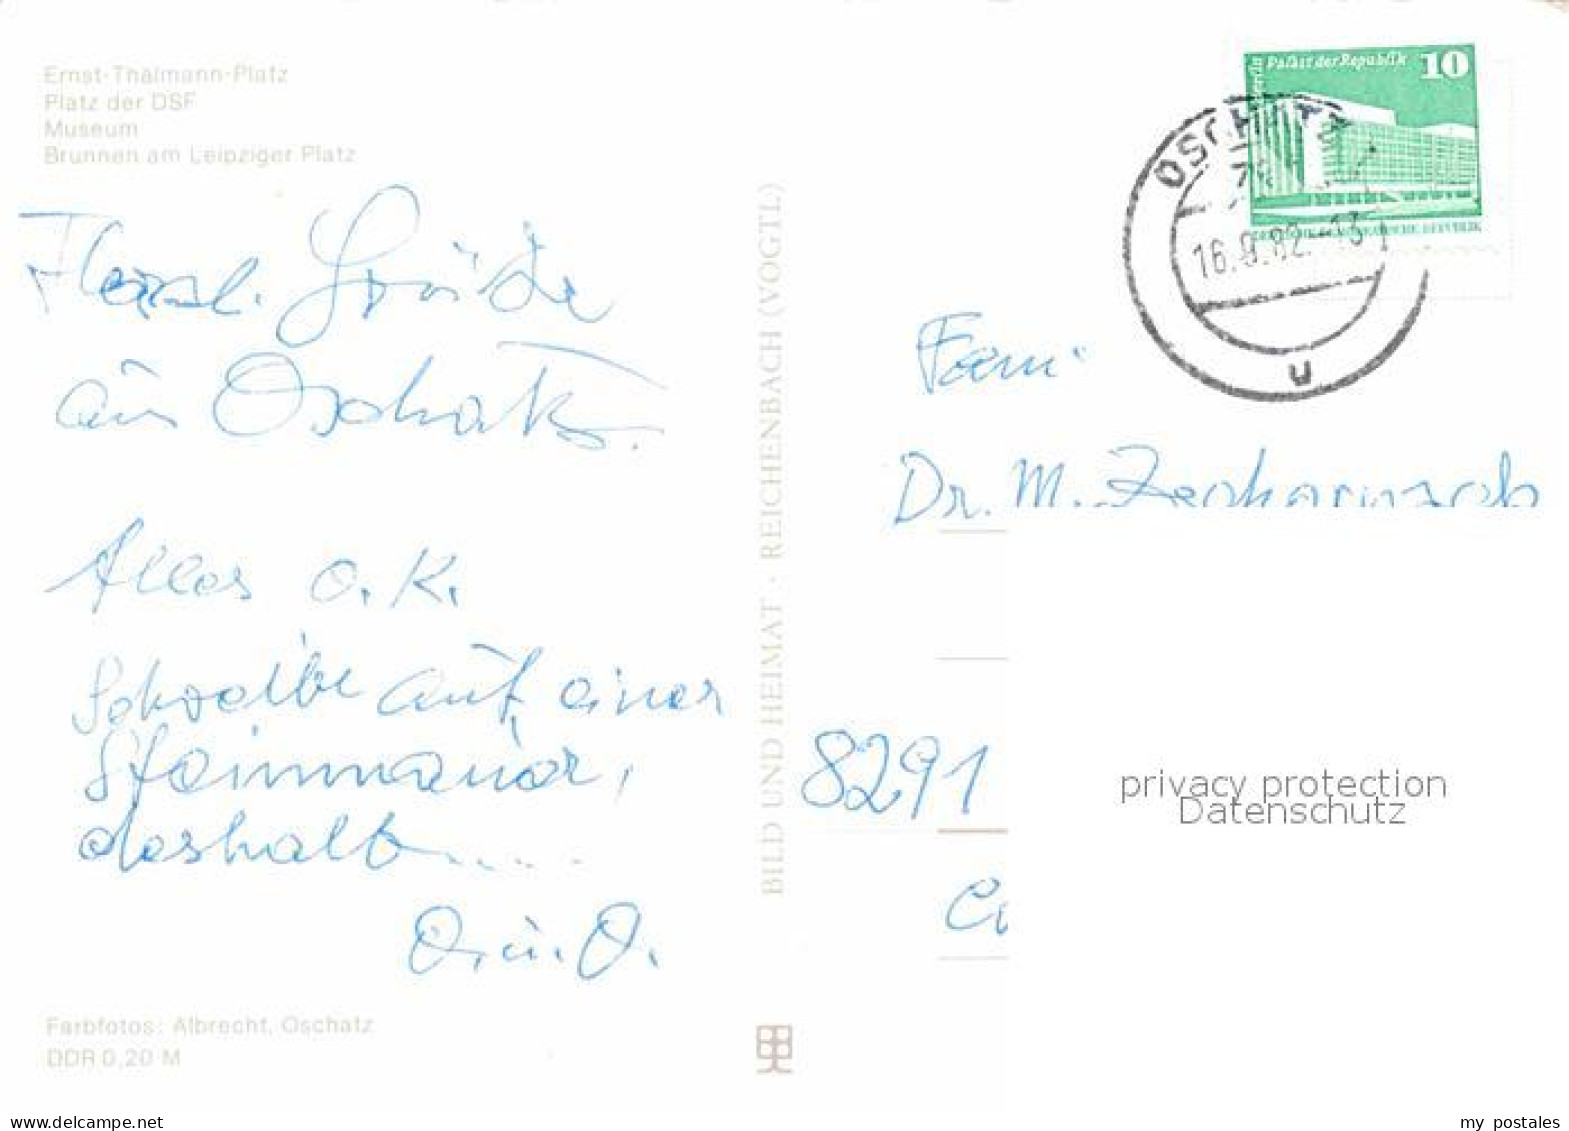 Ernst-Thälmann-Platz
Platz der DSF
Museum
Brunnen am Leipziger Platz
Herzl. Grüße
aus Oschatz.
Alles o.K.
Schreibe auf einer
Steinmauer,
deshalb....
BILD UND HEIMAT · REICHENBACH (VOGTL)
Berlin Palast der Republik 10
OSCHATZ
16.9.82.-13
u
Fam.
Dr. M.
8291
privacy protection
Datenschutz
Farbfotos: Albrecht, Oschatz
DDR 0,20 M
www.delcampe.net
my_postales